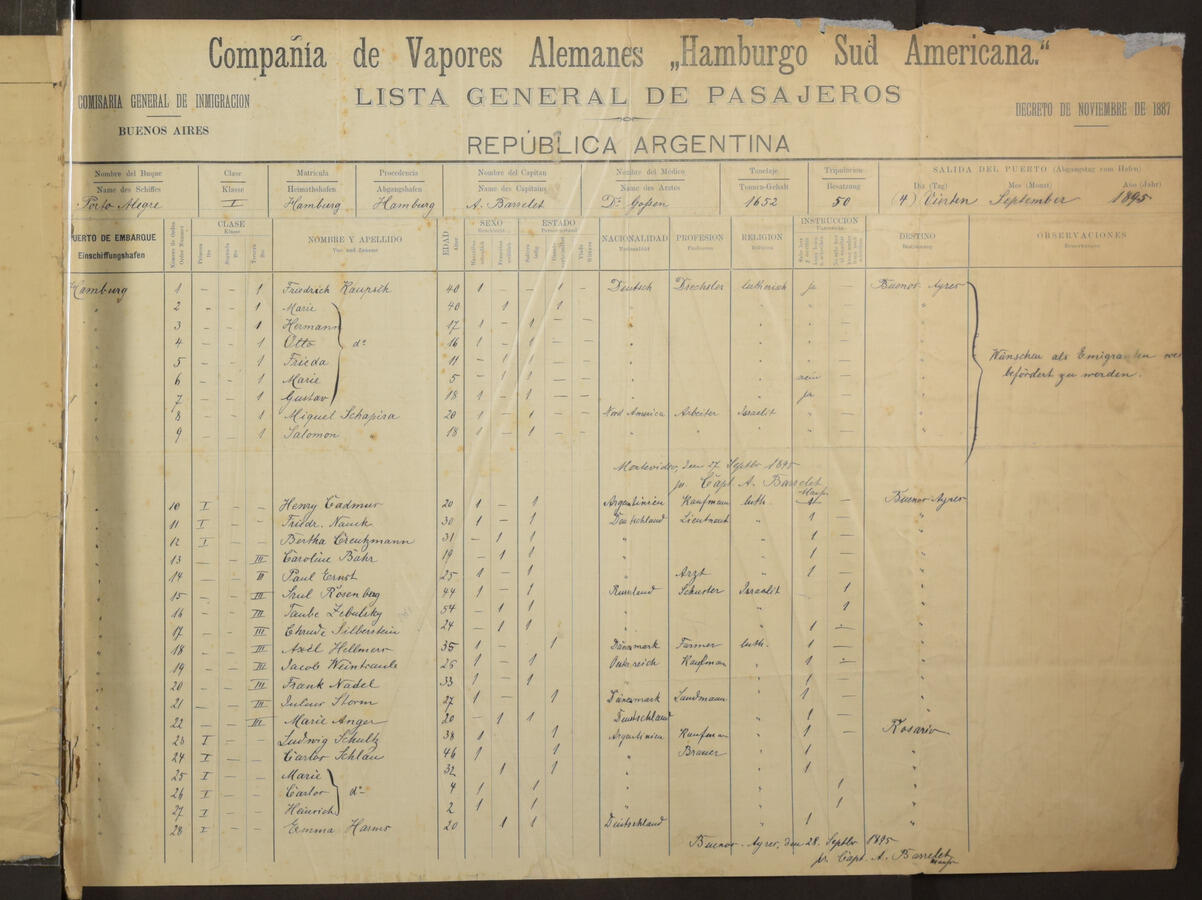 Compañía de Vapores Alemanes „Hamburgo Sud Americana."
COMISARIA GENERAL DE INMIGRACION
BUENOS AIRES
LISTA GENERAL DE PASAJEROS
DECRETO DE NOVIEMBRE DE 1887
REPÚBLICA ARGENTINA
Nombre del Buque Clase Matricula Procedencia Nombre del Capitan Nombre del Médico Tonelaje Tripulacion SALIDA DEL PUERTO (Abgangstag vom Hafen)
Name des Schiffes Klasse Heimathshafen Abgangshafen Name des Capitans Name des Arztes Tonnen-Gehalt Besatzung Dia (Tag) Mes (Monat) Año (Jahr)
Porto Alegre I Hamburg Hamburg A. Barrelet Dr. Gossen 1652 50 (4) September 1895
PUERTO DE EMBARQUE CLASE NOMBRE Y APELLIDO EDAD SEXO ESTADO NACIONALIDAD PROFESION RELIGION INSTRUCCION DESTINO OBSERVACIONES
Einschiffungshafen Klasse Vor- und Zuname
Hamburg 1 – – 1 Friedrich Kaupsch 40 1 – – 1 Deutsch Drechsler lutherisch ja – Buenos Ayres
" 2 – – 1 Marie 40 1 1
" 3 – – 1 Hermann 17 1 – 1 " " –
" 4 – – 1 Otto do 16 1 – 1 " " –
" 5 – – 1 Frieda 11 – 1 1 " " –
" 6 – – 1 Marie 5 – 1 1 " nein –
7 – – 1 Gustav 18 1 – 1 " ja –
Wünschen als Emigranten
befördert zu werden.
" 8 – – 1 Miguel Schapira 20 1 – 1 Nord America Arbeiter Israelit " –
" 9 – – 1 Salomon 18 1 – 1 " " " " –
Montevideo, den 27. Septbr 1895
pr. Capt A. Barrelet
" 10 I Henry Cadmus 20 1 1 Argentinien Kaufmann luth. – Buenos Ayres
" 11 I – – Friedr. Nauck 30 1 – 1 Deutschland Lieutenant " 1 – "
" 12 I – – Bertha Creutzmann 31 – 1 1 " 1 –
" 13 – – III Caroline Bahr 19 1 1 " 1 – "
" 14 – – II Paul Ernst 25 1 – 1 Arzt " 1 – "
" 15 – – III Saul Rosenberg 44 1 – 1 Russland Schuster Israelit 1 "
" 16 – – III Taube Zebulsky 54 – 1 1 " " 1 "
" 17 – – III Silberstein 24 – 1 1 " 1 – "
" 18 – – III Axel Hellmers 35 1 – 1 Dänemark Farmer luth. 1 – "
" 19 – – III Jacob Weintraub 25 1 – 1 Oesterreich Kaufman " 1 – "
" 20 – – III Frank Nadel 33 1 – 1 " " 1 "
" 21 – – III Julius Storm 27 1 – 1 Dänemark Landmann " 1 – "
" 22 – – III Marie Anger 20 – 1 1 Deutschland " 1 "
" 23 I – – Ludwig Schultz 38 1 1 Argentinien Kaufman " 1 – Rosario
" 24 I – – Carlos Schlau 46 1 1 " Brauer " 1 "
" 25 I – – Marie 32 1 1 " 1 "
" 26 I – – Carlos do 4 1 1 " 1 "
" 27 I – – Heinrich 2 1 1 " 1 "
" 28 I – – Emma Harms 20 1 1 Deutschland 1 "
Buenos-Ayres, den 28. Septbr 1895
pr. Capt. A. Barrelet